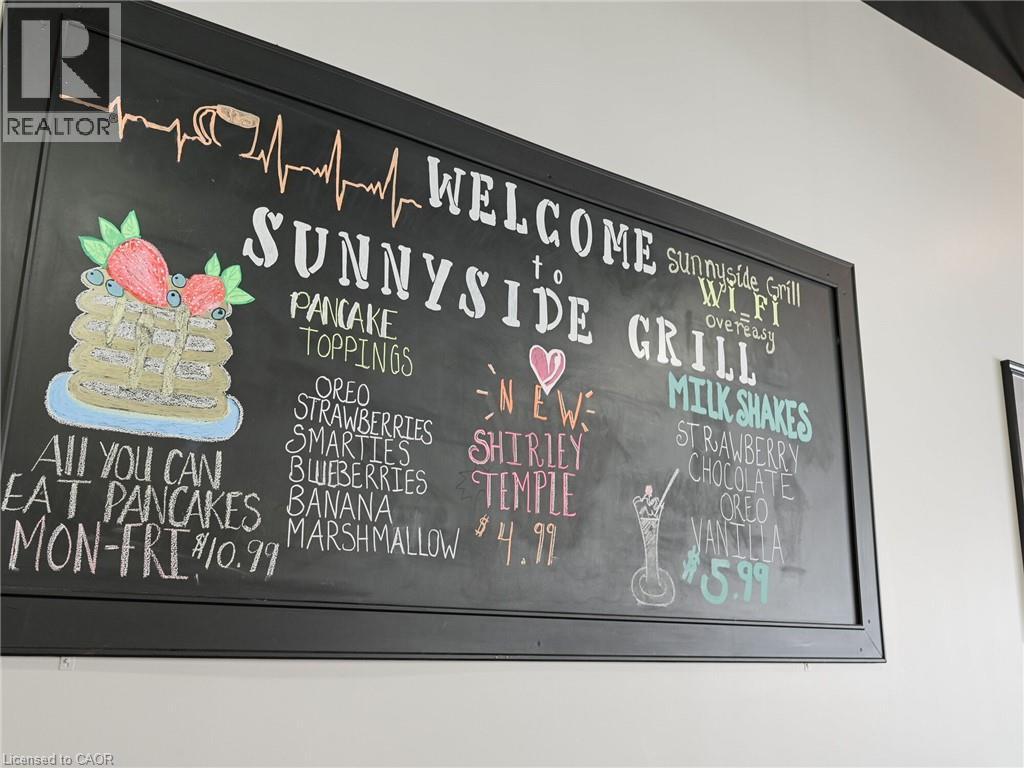 REALTOR®
WELCOME
to
SUNNYSIDE GRILL
sunnyside Grill
WI-FI
=
overeasy
PANCAKE
TOPPINGS
OREO
STRAWBERRIES
SMARTIES
BLUEBERRIES
BANANA
MARSHMALLOW
All YOU CAN
EAT PANCAKES
MON-FRI $10.99
NEW
SHIRLEY
TEMPLE
$4.99
MILKSHAKES
STRAWBERRY
CHOCOLATE
OREO
VANILLA
$5.99
Licensed to CAOR